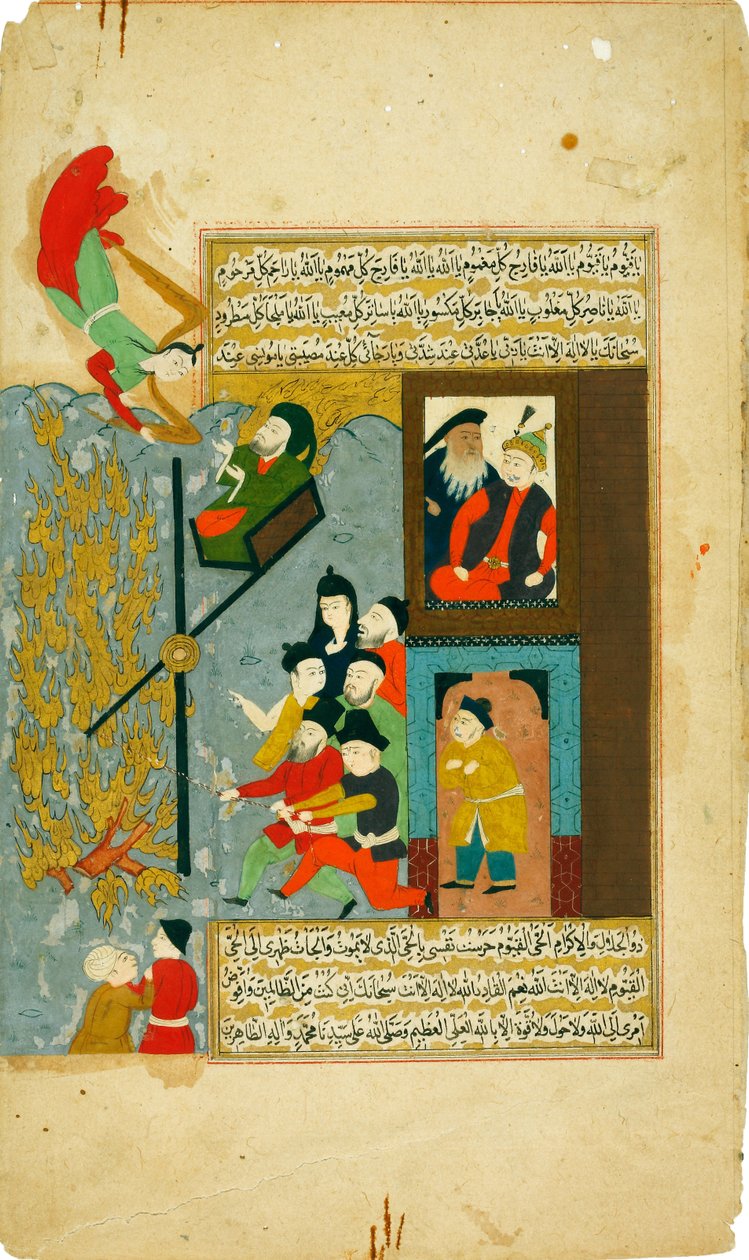 يا قيوم يا قيوم يا الله يا فارج كل مغموم يا الله يا الله يا فارج كل مهموم يا الله يا راحم كل مرحوم
يا الله يا ناصر كل مغلوب يا الله يا جابر كل مكسور يا الله يا ساتر كل معيب يا الله يا ملجأ كل مطرود
سبحانك يا لا اله الا انت يا ربي يا عدتي عند شدتي ويا رجائي كل عند مصيبتي يا مونسي عند
ذو الجلال والاكرام الحي القيوم حرست نفسي بالحي الذي لا يموت والجات ظهري الى الحي
القيوم لا اله الا انت الله نعم القادر الله لا اله الا انت سبحانك اني كنت من الظالمين وافوض
امري الى الله ولا حول ولا قوة الا بالله العلي العظيم وصلى الله على سيدنا محمد واله الطاهرين